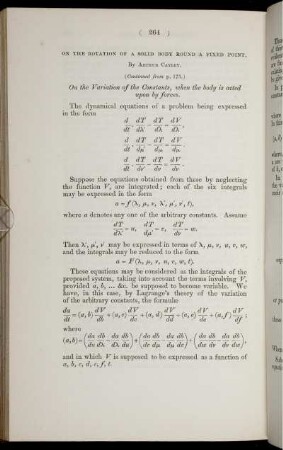 ( 264 )
ON THE ROTATION OF A SOLID BODY ROUND A FIXED POINT.
By Arthur Cayley.
(Continued from p. 173.)
On the Variation of the Constants, when the body is acted
upon by forces.
The dynamical equations of a problem being expressed
in the form
d/dt · dT/dλ' − dT/dλ = dV/dλ,
d/dt · dT/dμ' − dT/dμ = dV/dμ,
d/dt · dT/dν' − dT/dν = dV/dν.
Suppose the equations obtained from these by neglecting
the function V, are integrated; each of the six integrals
may be expressed in the form
a = f(λ, μ, ν, λ', μ', ν', t),
where a denotes any one of the arbitrary constants. Assume
dT/dλ' = u, dT/dμ' = v, dT/dν' = w.
Then λ', μ', ν' may be expressed in terms of λ, μ, ν, u, v, w,
and the integrals may be reduced to the form
a = F(λ, μ, ν, u, v, w, t).
These equations may be considered as the integrals of the
proposed system, taking into account the terms involving V,
provided a, b, ... &c. be supposed to become variable. We
have, in this case, by Lagrange's theory of the variation
of the arbitrary constants, the formulæ
da/dt = (a, b) dV/db + (a, c) dV/dc + (a, d) dV/dd + (a, e) dV/de + (a, f) dV/df;
where
(a, b) = (da/du db/dλ − da/dλ db/du) + (da/dv db/dμ − da/dμ db/dv) + (da/dw db/dν − da/dν db/dw),
and in which V is supposed to be expressed as a function of
a, b, c, d, e, f, t.